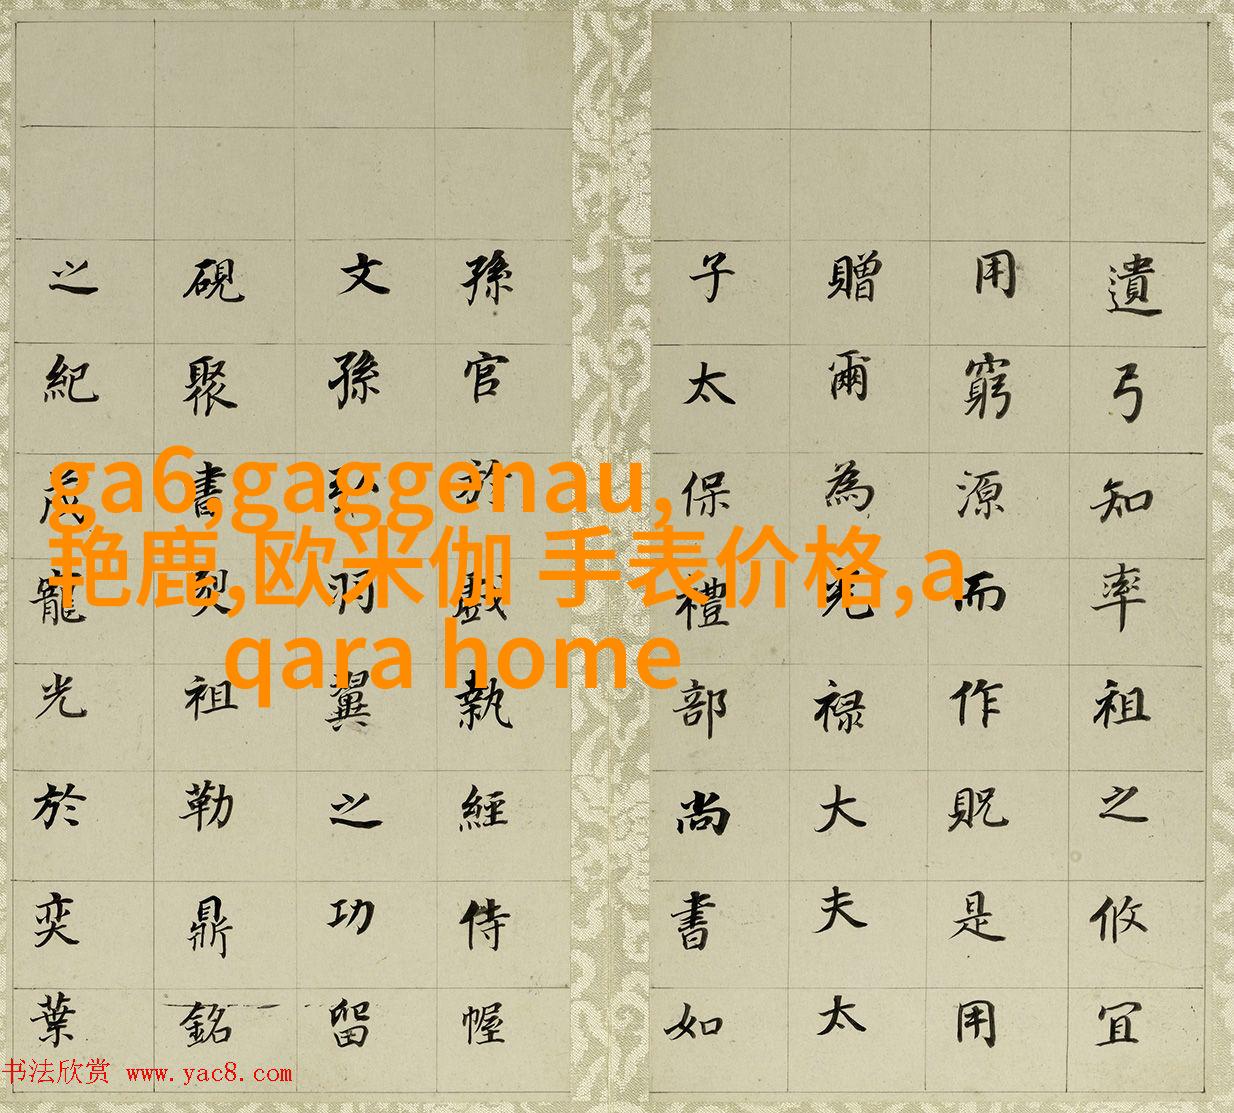 遺弓知率祖之攸宜
用窮源而作貺是用
贈爾為禄大夫太
子太保禮部尚書如
孫官於戲執經侍幄
文孫羽翼之功留
硯聚書祖勒鼎銘
之紀寵光於奕葉
ga6,gaggenau,
艳鹿,欧米伽 手表价格,a
qara home
书法欣赏 www.yac8.com